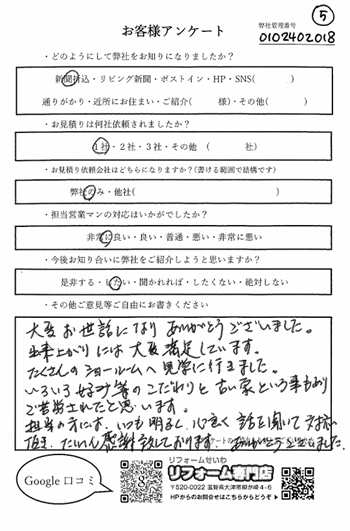 ⑤
お客様アンケート
弊社管理番号
0102402018
・どのようにして弊社をお知りになりましたか？
新聞折込・リビング新聞・ポストイン・HP・SNS(　　　)
通りがかり・近所にお住まい・ご紹介(　　　様)・その他(　　　)
・お見積りは何社依頼されましたか？
1社・2社・3社・その他　(　　　社)
・お見積り依頼会社はどちらになりますか？(書ける範囲で結構です)
弊社のみ・他社(　　　)
・担当営業マンの対応はいかがでしたか？
非常に良い・良い・普通・悪い・非常に悪い
・今後お知り合いに弊社をご紹介しようと思いますか？
是非する・したい・聞かれれば・したくない・絶対しない
・その他ご意見等ご自由にお書きください
大変お世話になり ありがとうございました。
出来上がりには大変満足しています。
たくさんのショールームへ見学に行きました。
いろいろ好み等のこだわりと古い家という事もあり
ご苦労されたと思います。
担当の方には、いつも明るく 心良く 話を聞いて
頂き、たいへん感謝致しております。 ありがとうございました。
Google 口コミ
リフォームせいわ
リフォーム専門店
〒520-0022 滋賀県大津市柳が崎4-6
HPからのお問合せはこちらからどうぞ